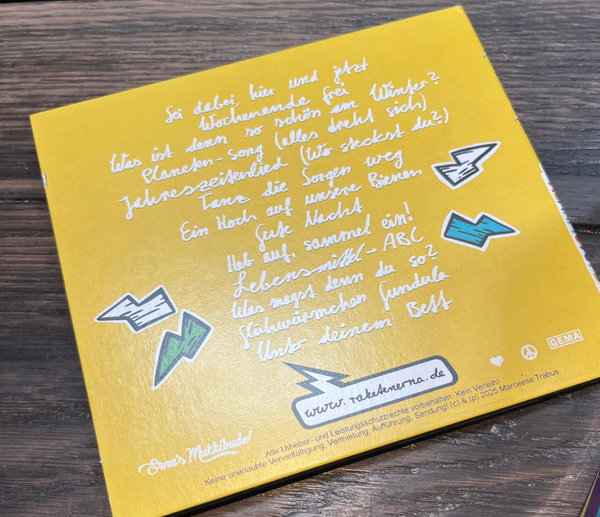 Sei dabei, hier und jetzt
Wochenende frei
Was ist denn so schön am Winter?
Planeten-Song (alles dreht sich)
Jahreszeitenlied (Wo steckst du?)
Tanz die Sorgen weg
Ein Hoch auf unsere Bienen
Gute Nacht
Heb auf, sammel ein!
Lebensmittel-ABC
Was magst denn du so?
Glühwürmchen Gundula
Unter deinem Bett
www.raketenerna.de
GEMA
Erna's Mukkibude!
Alle Urheber- und Leistungsschutzrechte vorbehalten. Kein Verleih!
Keine unerlaubte Vervielfältigung, Vermietung, Aufführung, Sendung! (c) & (p) 2025 Marceese Trabus